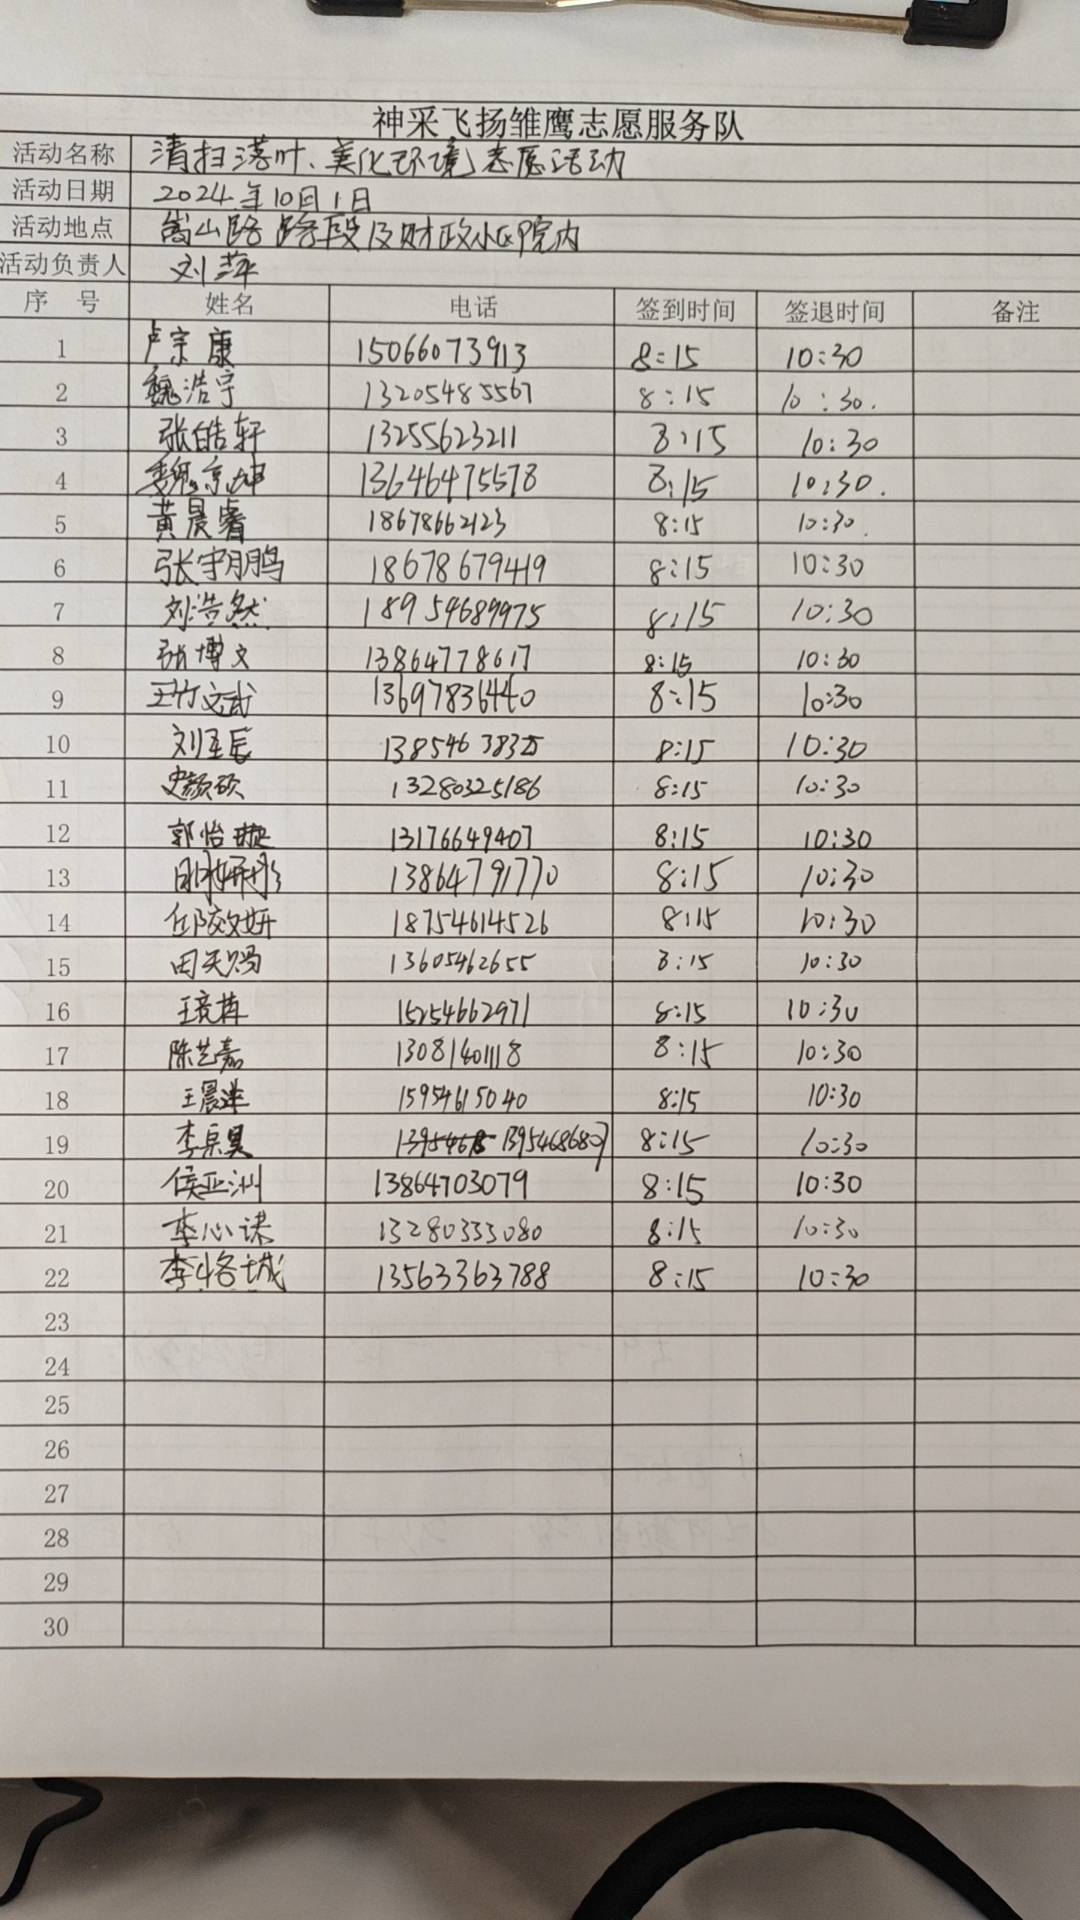 神采飞扬雏鹰志愿服务队
活动名称 清扫落叶、美化环境志愿活动
活动日期 2024年10月1日
活动地点 嵩山路路段及财政小区院内
活动负责人 刘萍
序 号 姓名 电话 签到时间 签退时间 备注
1 卢宗康 15066073913 8:15 10:30
2 魏浩宇 13205485567 8:15 10:30.
3 张皓轩 13255623211 8:15 10:30
4 魏京坤 13646475578 8:15 10:30.
5 黄晨睿 18678662123 8:15 10:30.
6 张宇鹏 18678679419 8:15 10:30
7 刘浩然 18954689975 8:15 10:30
8 张博文 13864778617 8:15 10:30
9 王竹斌 13697836440 8:15 10:30
10 刘辰 8:15 10:30
11 史颜硕 13280325186 8:15 10:30
12 郭怡璇 13176649407 8:15 10:30
13 13864791770 8:15 10:30
14 18754614526 8:15 10:30
15 田天赐 13605462655 8:15 10:30
16 王 15254662971 8:15 10:30
17 陈艺嘉 13081401118 8:15 10:30
18 王晨 15954615040 8:15 10:30
19 李昊 8:15 10:30
20 侯亚汕 13864703079 8:15 10:30
21 李心诺 13280333080 8:15 10:30
22 李恪城 13563363788 8:15 10:30
23
24
25
26
27
28
29
30